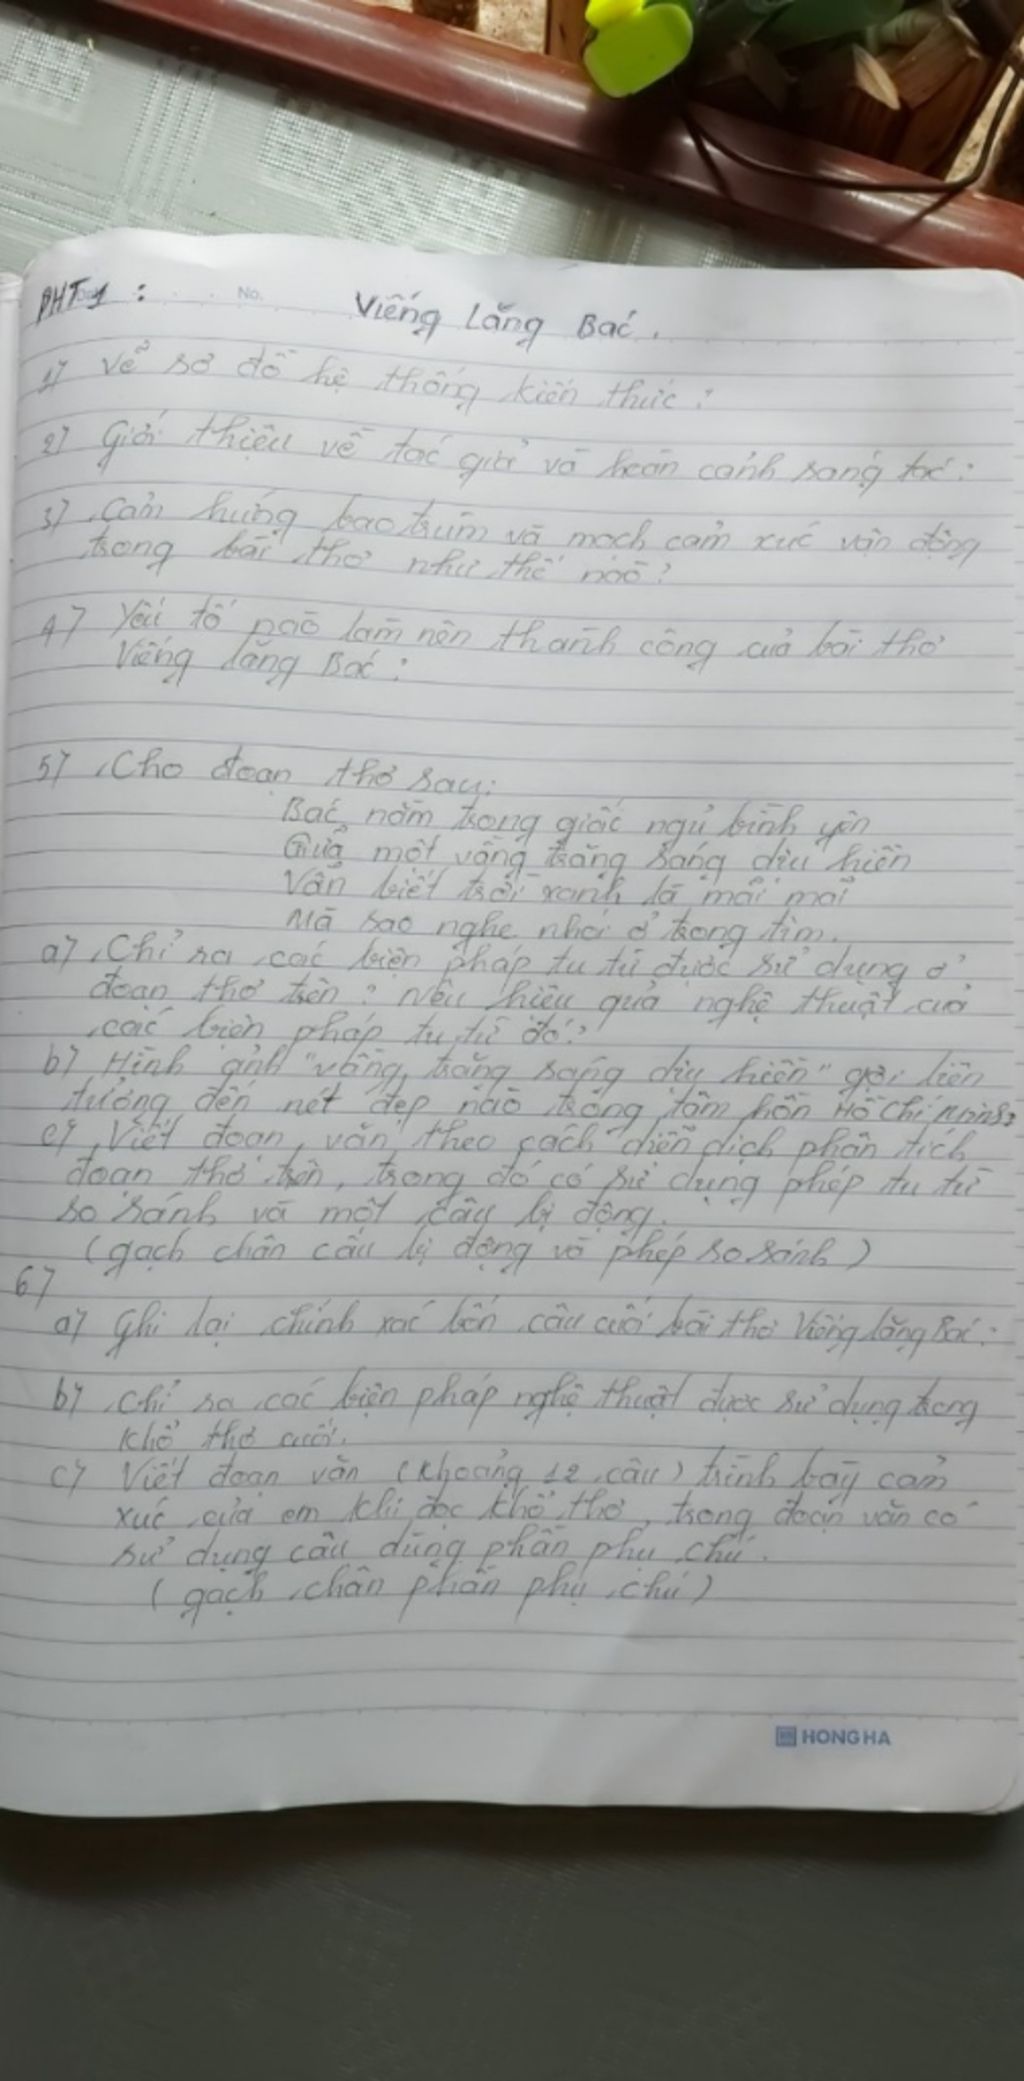 PHT 1 : No. Viếng Lăng Bác.
1) Vẽ sơ đồ hệ thống kiến thức :
2) Giới thiệu về tác giả và hoàn cảnh sáng tác :
3) Cảm hứng bao trùm và mạch cảm xúc vận động
trong bài thơ như thế nào ?
4) Yếu tố nào làm nên thành công của bài thơ
Viếng lăng Bác :
5) Cho đoạn thơ sau:
Bác nằm trong giấc ngủ bình yên
Giữa một vầng trăng sáng dịu hiền
Vẫn biết trời xanh là mãi mãi
Mà sao nghe nhói ở trong tim.
a) Chỉ ra các biện pháp tu từ được sử dụng ở
đoạn thơ trên ? Nêu hiệu quả nghệ thuật của
các biện pháp tu từ đó ?
b) Hình ảnh "vầng trăng sáng dịu hiền" gợi liên
tưởng đến nét đẹp nào trong tâm hồn Hồ Chí Minh?
c) Viết đoạn văn theo cách diễn dịch phân tích
đoạn thơ trên, trong đó có sử dụng phép tu từ
so sánh và một câu bị động.
(gạch chân câu bị động và phép so sánh)
6)
a) Ghi lại chính xác bốn câu cuối bài thơ Viếng lăng Bác :
b) Chỉ ra các biện pháp nghệ thuật được sử dụng trong
khổ thơ cuối.
c) Viết đoạn văn (khoảng 12 câu) trình bày cảm
xúc của em khi đọc khổ thơ, trong đoạn văn có
sử dụng câu dùng phần phụ chú.
(gạch chân phần phụ chú)
HONG HA